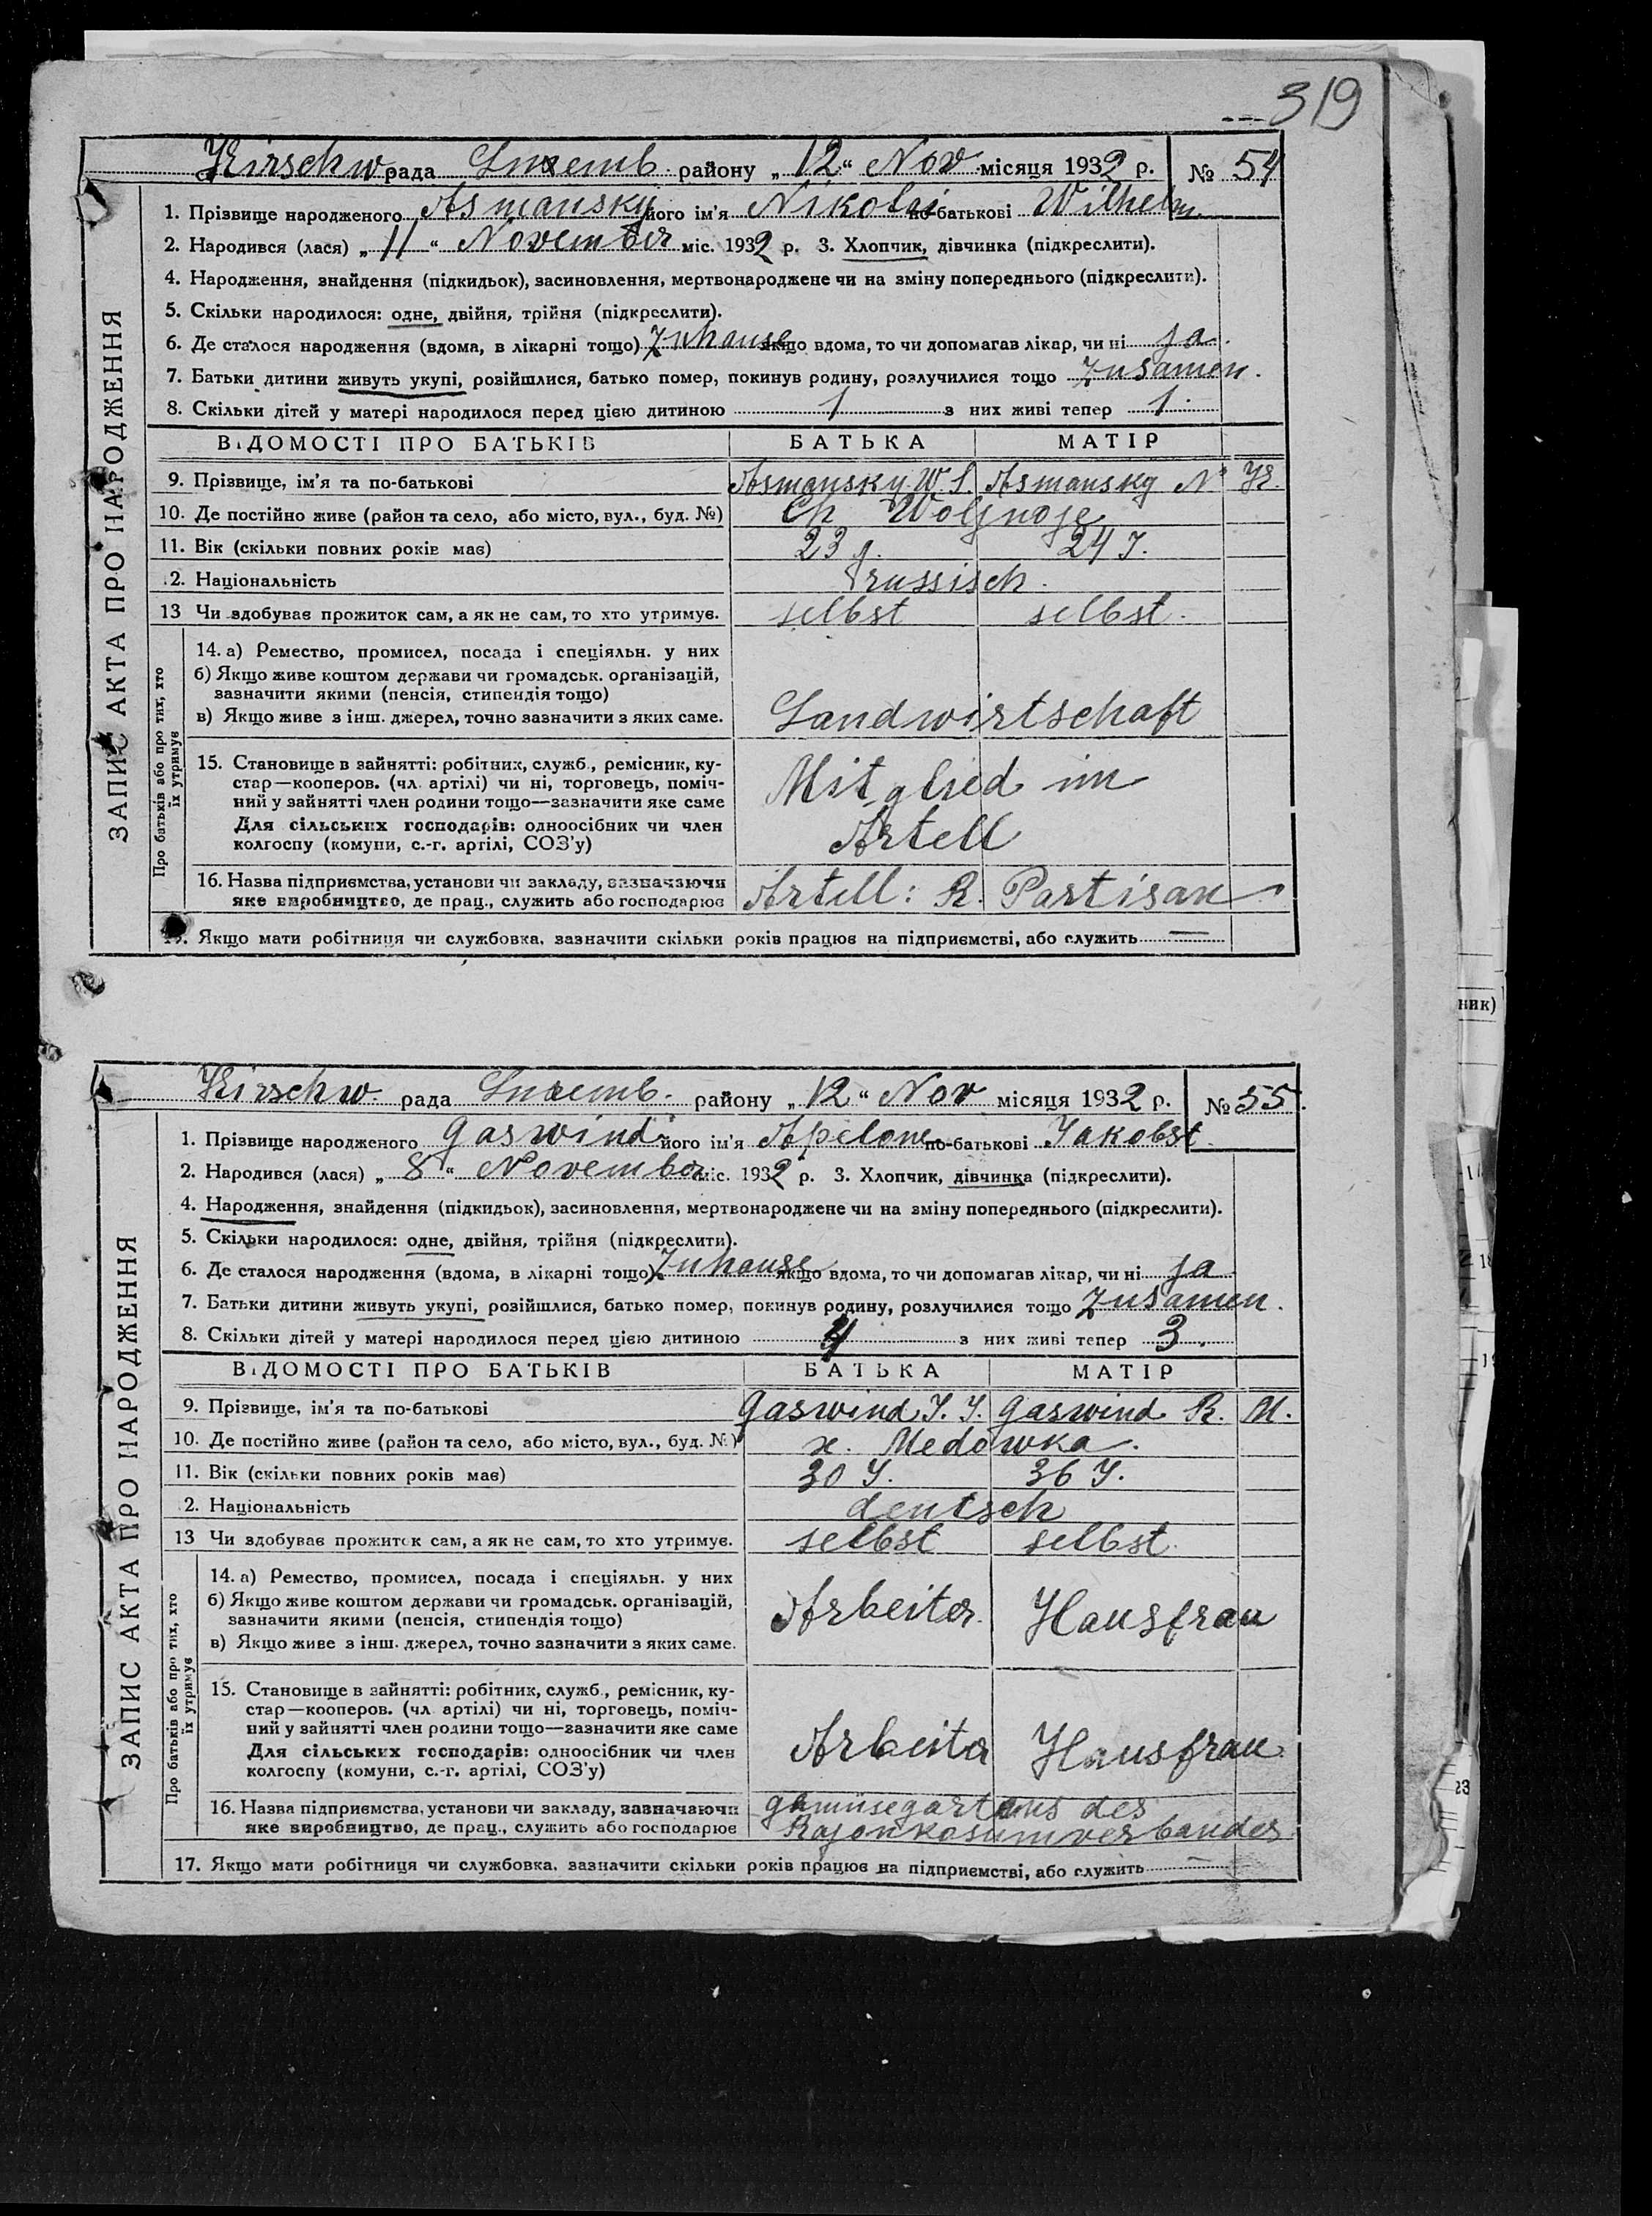 319
Kirschw. рада Luxemb. району „12“ Nov місяця 1932 р. № 54
ЗАПИС АКТА ПРО НАРОДЖЕННЯ
1. Прізвище народженого Asmansky його ім'я Nikolai по-батькові Wilhelm.
2. Народився (лася) „11“ November міс. 1932 р. 3. Хлопчик, дівчинка (підкреслити).
4. Народження, знайдення (підкидьок), засиновлення, мертвонароджене чи на зміну попереднього (підкреслити).
5. Скільки народилося: одне, двійня, трійня (підкреслити).
6. Де сталося народження (вдома, в лікарні тощо) Zuhause якщо вдома, то чи допомагав лікар, чи ні ja.
7. Батьки дитини живуть укупі, розійшлися, батько помер, покинув родину, розлучилися тощо Zusamen.
8. Скільки дітей у матері народилося перед цією дитиною 1 з них живі тепер 1.
ВІДОМОСТІ ПРО БАТЬКІВ БАТЬКА МАТІР
9. Прізвище, ім'я та по-батькові Asmansky W. S. Asmansky N. K.
10. Де постійно живе (район та село, або місто, вул., буд. №) Ch Woljnoje
11. Вік (скільки повних років має) 23 J. 24 J.
12. Національність russisch.
13 Чи здобуває прожиток сам, а як не сам, то хто утримує. selbst selbst.
Про батьків або про тих, хто їх утримує
14. а) Ремество, промисел, посада і спеціяльн. у них
б) Якщо живе коштом держави чи громадськ. організацій,
зазначити якими (пенсія, стипендія тощо)
в) Якщо живе з інш. джерел, точно зазначити з яких саме. Landwirtschaft
15. Становище в зайнятті: робітник, служб., ремісник, ку-
стар—кооперов. (чл. артілі) чи ні, торговець, поміч-
ний у зайнятті член родини тощо—зазначити яке саме
Для сільських господарів: одноосібник чи член
колгоспу (комуни, с.-г. артілі, СОЗ'у)
Mitglied im
Artell
16. Назва підприємства, установи чи закладу, зазначаючи
яке виробництво, де прац., служить або господарює Artell: R. Partisan
17. Якщо мати робітниця чи службовка, зазначити скільки років працює на підприємстві, або служить —
Kirschw. рада Luxemb. району „12“ Nov місяця 1932 р. № 55.
ЗАПИС АКТА ПРО НАРОДЖЕННЯ
1. Прізвище народженого Gaswind його ім'я Apelone по-батькові Jakobst.
2. Народився (лася) „8“ November міс. 1932 р. 3. Хлопчик, дівчинка (підкреслити).
4. Народження, знайдення (підкидьок), засиновлення, мертвонароджене чи на зміну попереднього (підкреслити).
5. Скільки народилося: одне, двійня, трійня (підкреслити).
6. Де сталося народження (вдома, в лікарні тощо) Zuhause якщо вдома, то чи допомагав лікар, чи ні ja
7. Батьки дитини живуть укупі, розійшлися, батько помер, покинув родину, розлучилися тощо Zusamen.
8. Скільки дітей у матері народилося перед цією дитиною 4 з них живі тепер 3.
ВІДОМОСТІ ПРО БАТЬКІВ БАТЬКА МАТІР
9. Прізвище, ім'я та по-батькові Gaswind J. J. Gaswind R. M.
10. Де постійно живе (район та село, або місто, вул., буд. №) х. Medowka.
11. Вік (скільки повних років має) 30 J. 36 J.
12. Національність deutsch
13 Чи здобуває прожиток сам, а як не сам, то хто утримує. selbst selbst.
Про батьків або про тих, хто їх утримує
14. а) Ремество, промисел, посада і спеціяльн. у них
б) Якщо живе коштом держави чи громадськ. організацій,
зазначити якими (пенсія, стипендія тощо)
в) Якщо живе з інш. джерел, точно зазначити з яких саме.
Arbeiter. Hausfrau
15. Становище в зайнятті: робітник, служб., ремісник, ку-
стар—кооперов. (чл. артілі) чи ні, торговець, поміч-
ний у зайнятті член родини тощо—зазначити яке саме
Для сільських господарів: одноосібник чи член
колгоспу (комуни, с.-г. артілі, СОЗ'у)
Arbeiter Hausfrau
16. Назва підприємства, установи чи закладу, зазначаючи
яке виробництво, де прац., служить або господарює
gamüsegartens des
Rajonkosumverbandes
17. Якщо мати робітниця чи службовка, зазначити скільки років працює на підприємстві, або служить —
ник)